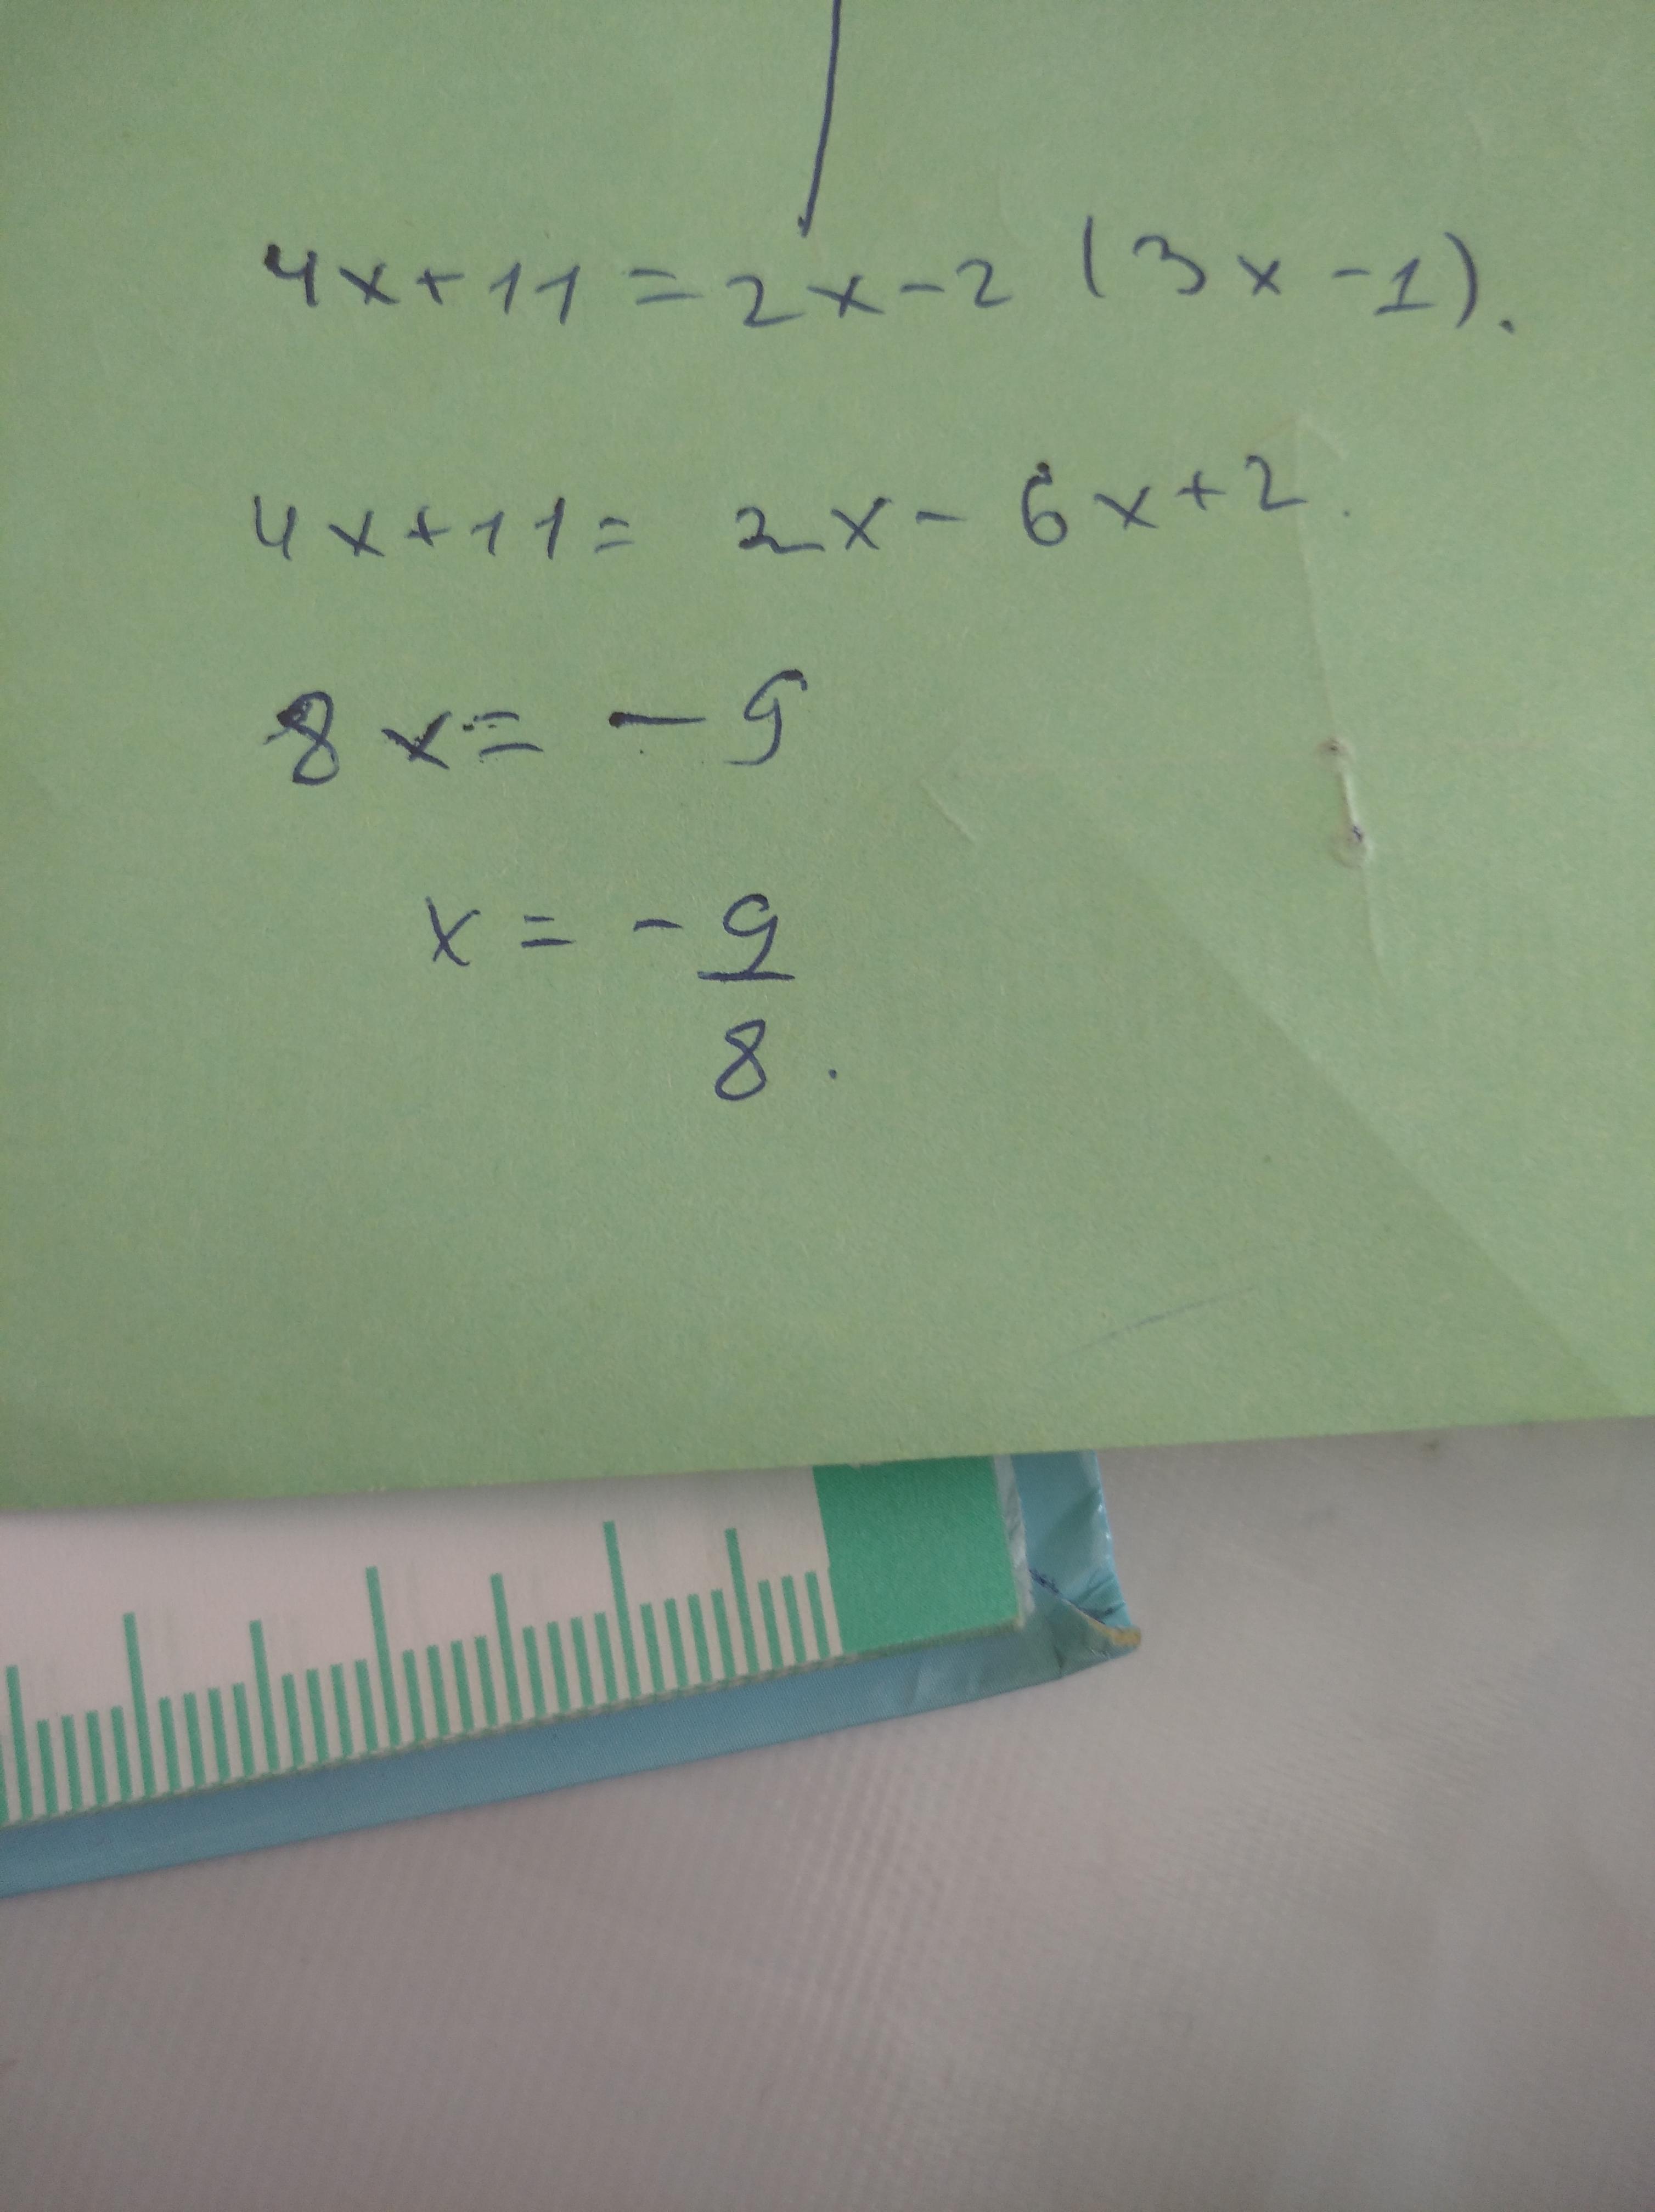 4x+11=2x-2(3x-1).
4x+11= 2x-6x+2.
8x=-9
x=-9/8.